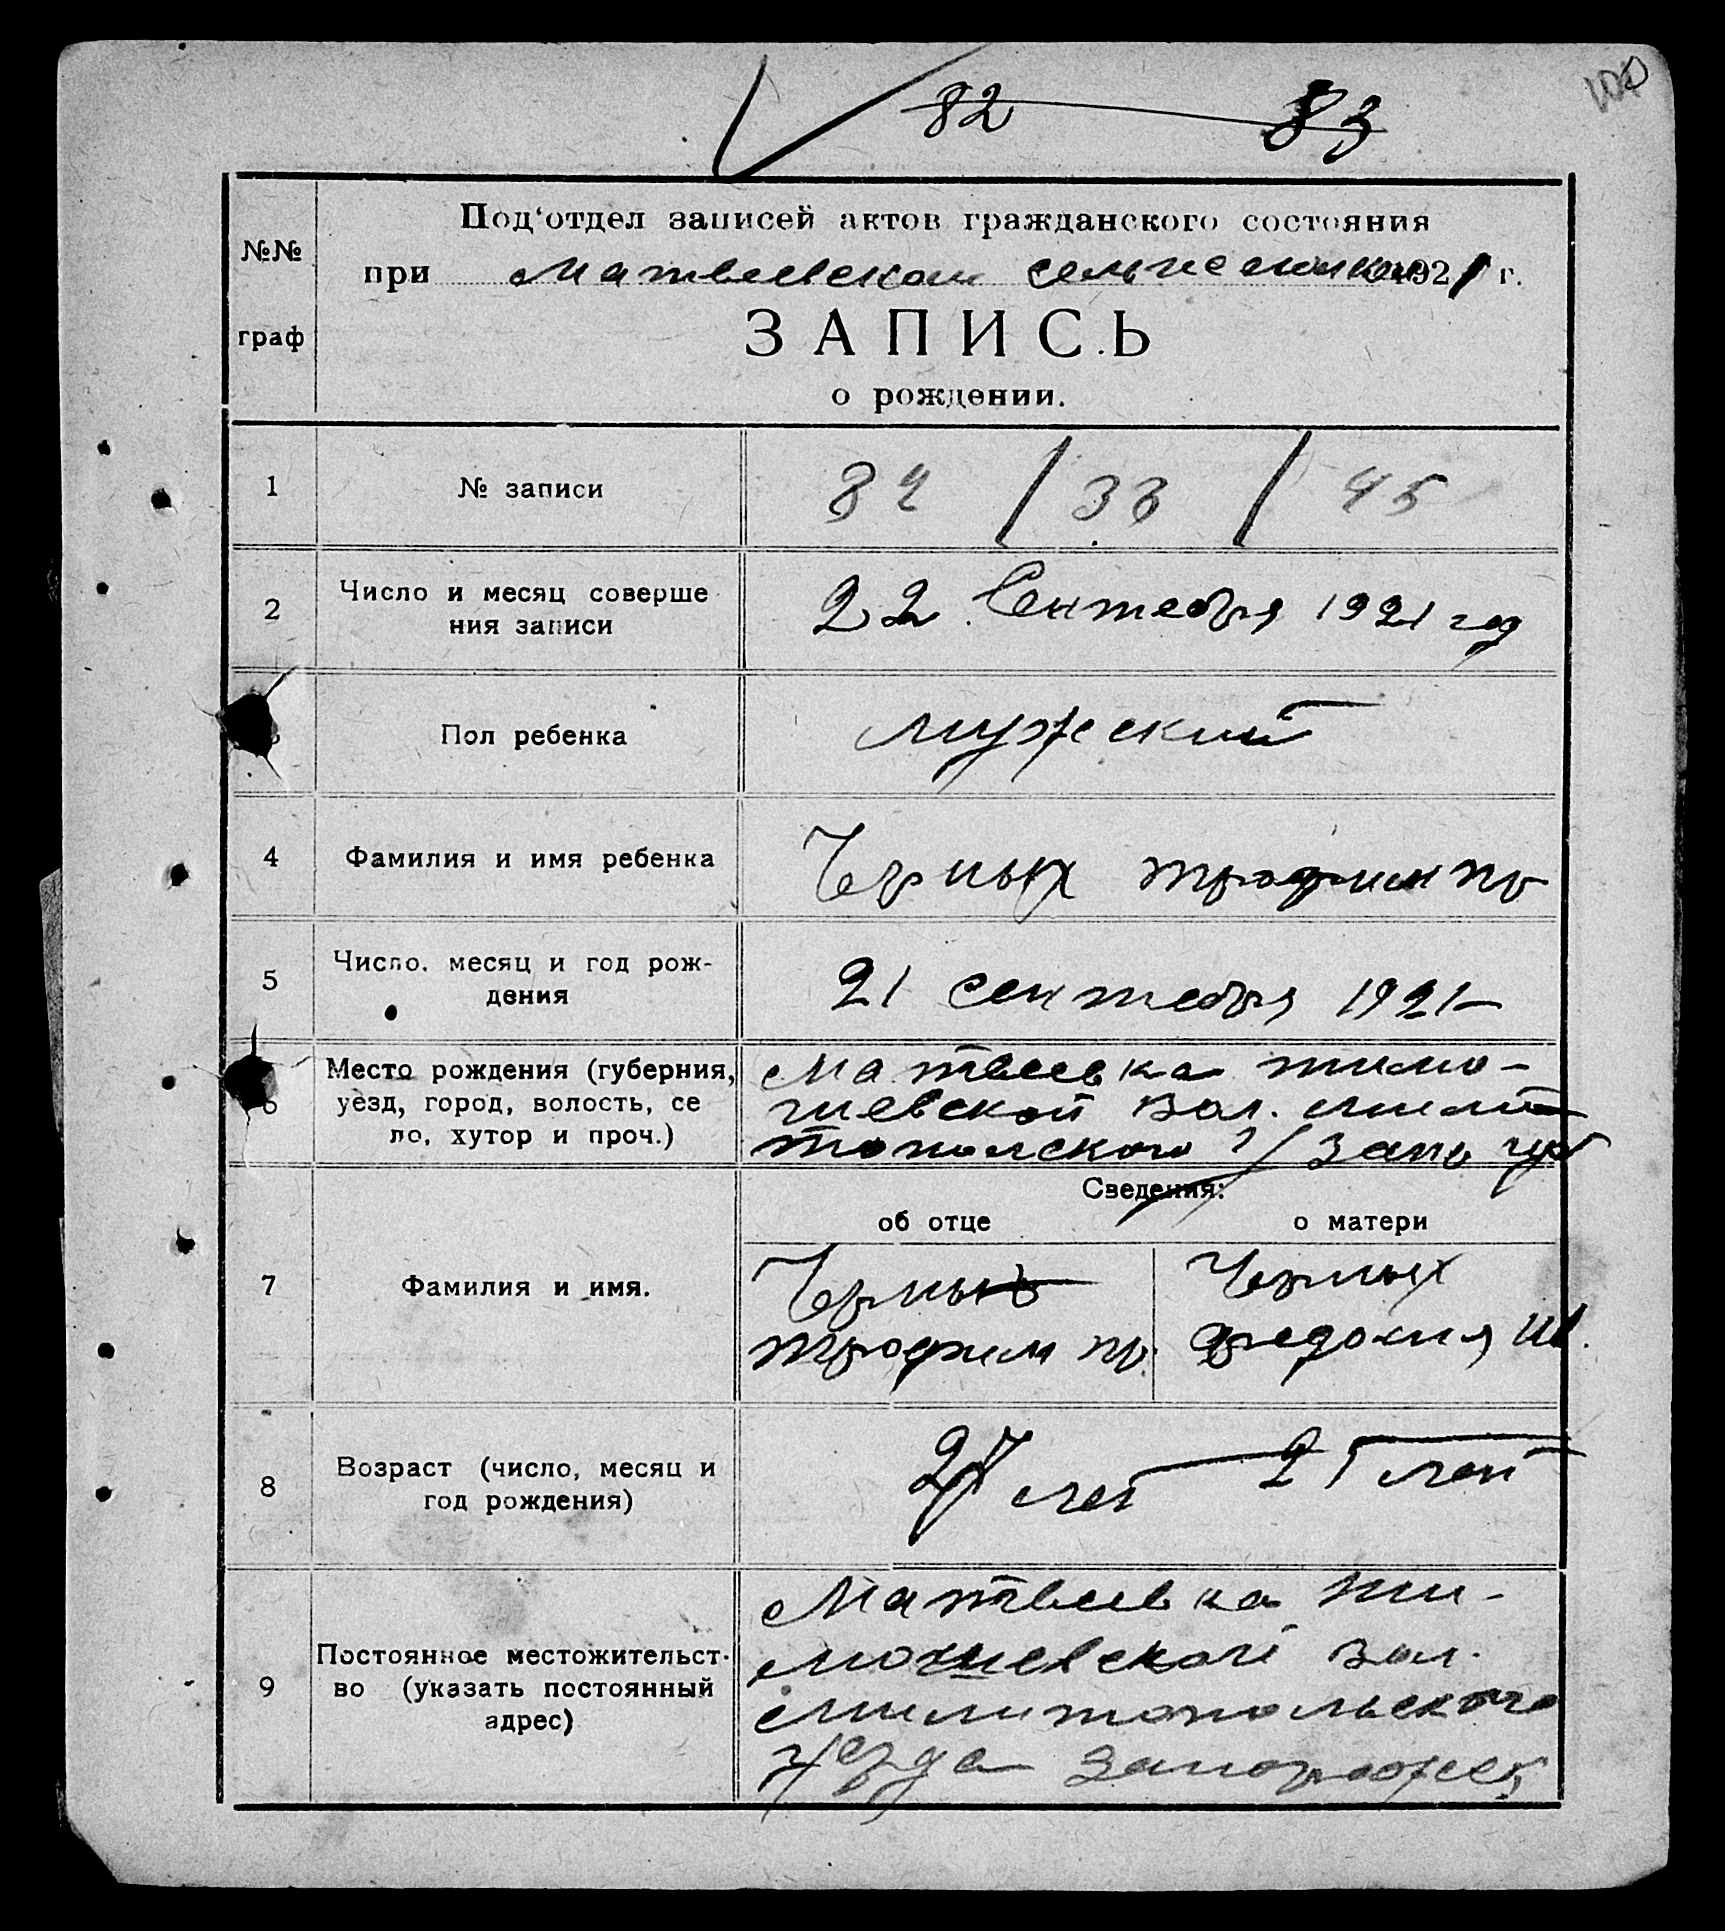 82 83
№№
граф
Под'отдел записей актов гражданского состояния
при Матвеевском 1921 г.
ЗАПИСЬ
о рождении.
1 № записи 82 / 33 / 45
2 Число и месяц соверше
ния записи 22 Сентебря 1921 год
Пол ребенка мужский
4 Фамилия и имя ребенка Черных трофим пр
5 Число, месяц и год рож-
дения 21 сентебря 1921
6 Место рождения (губерния,
уезд, город, волость, се
ло, хутор и проч.) Матвеевка тимо-
шевской вол. мелит
топольского у/ Запо губ
Сведения:
об отце о матери
7 Фамилия и имя. Черных Черных
трофим пр. федокия Ив.
8 Возраст (число, месяц и
год рождения) 27 лет 25 лет
9 Постоянное местожительст-
во (указать постоянный
адрес) Матвеевка ти-
мошевской вол.
милитопольского
уезда запорожск